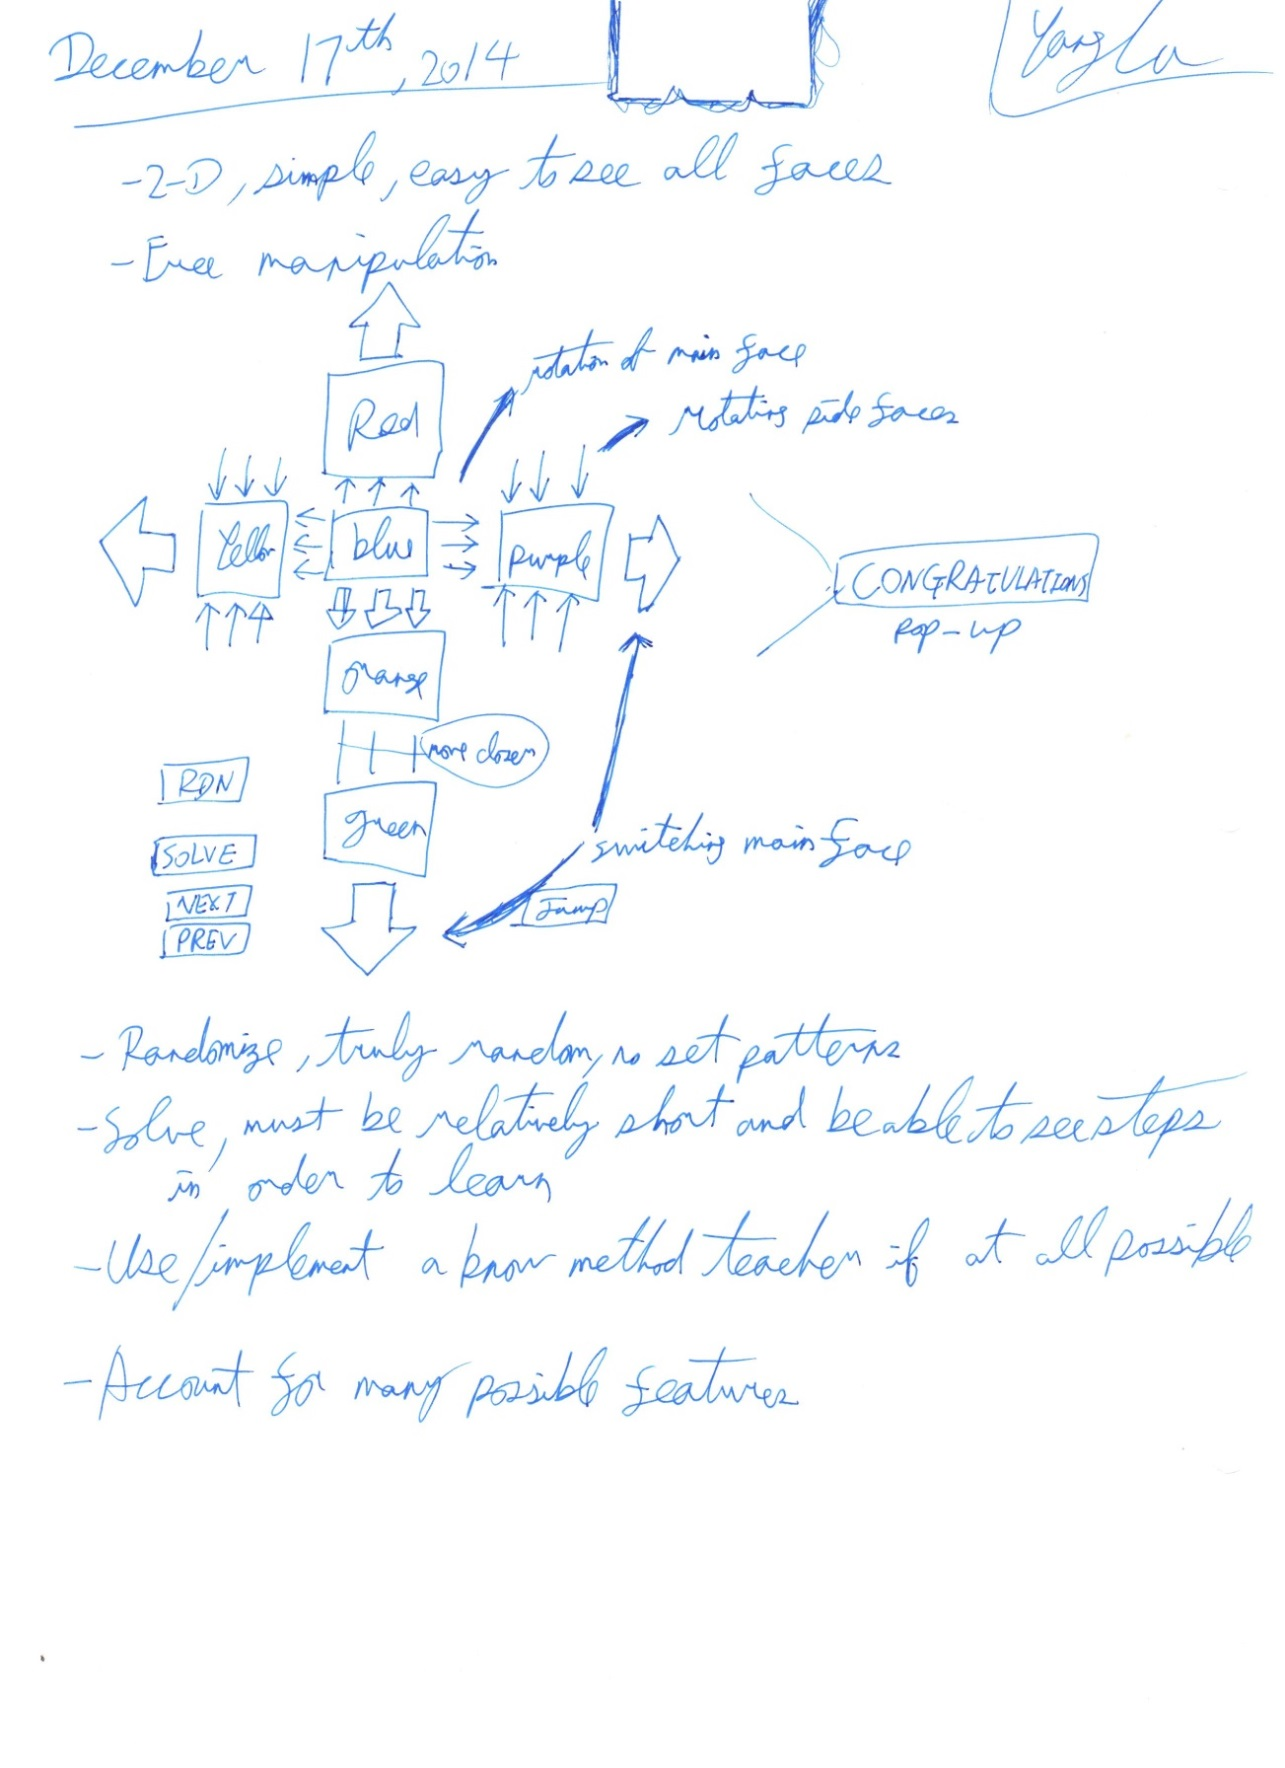 December 17th, 2014
-2-D, simple, easy to see all faces
-Free manipulation
rotation of main face
rotating side faces
Red
Yellow
blue
purple
CONGRATULATIONS
pop-up
orange
move closer
RDN
green
SOLVE
switching main face
NEXT
Jump
PREV
-Randomize, truly random, no set patterns
-Solve, must be relatively short and be able to see steps
in order to learn
-Use/implement a know method teacher if at all possible
-Account for many possible features